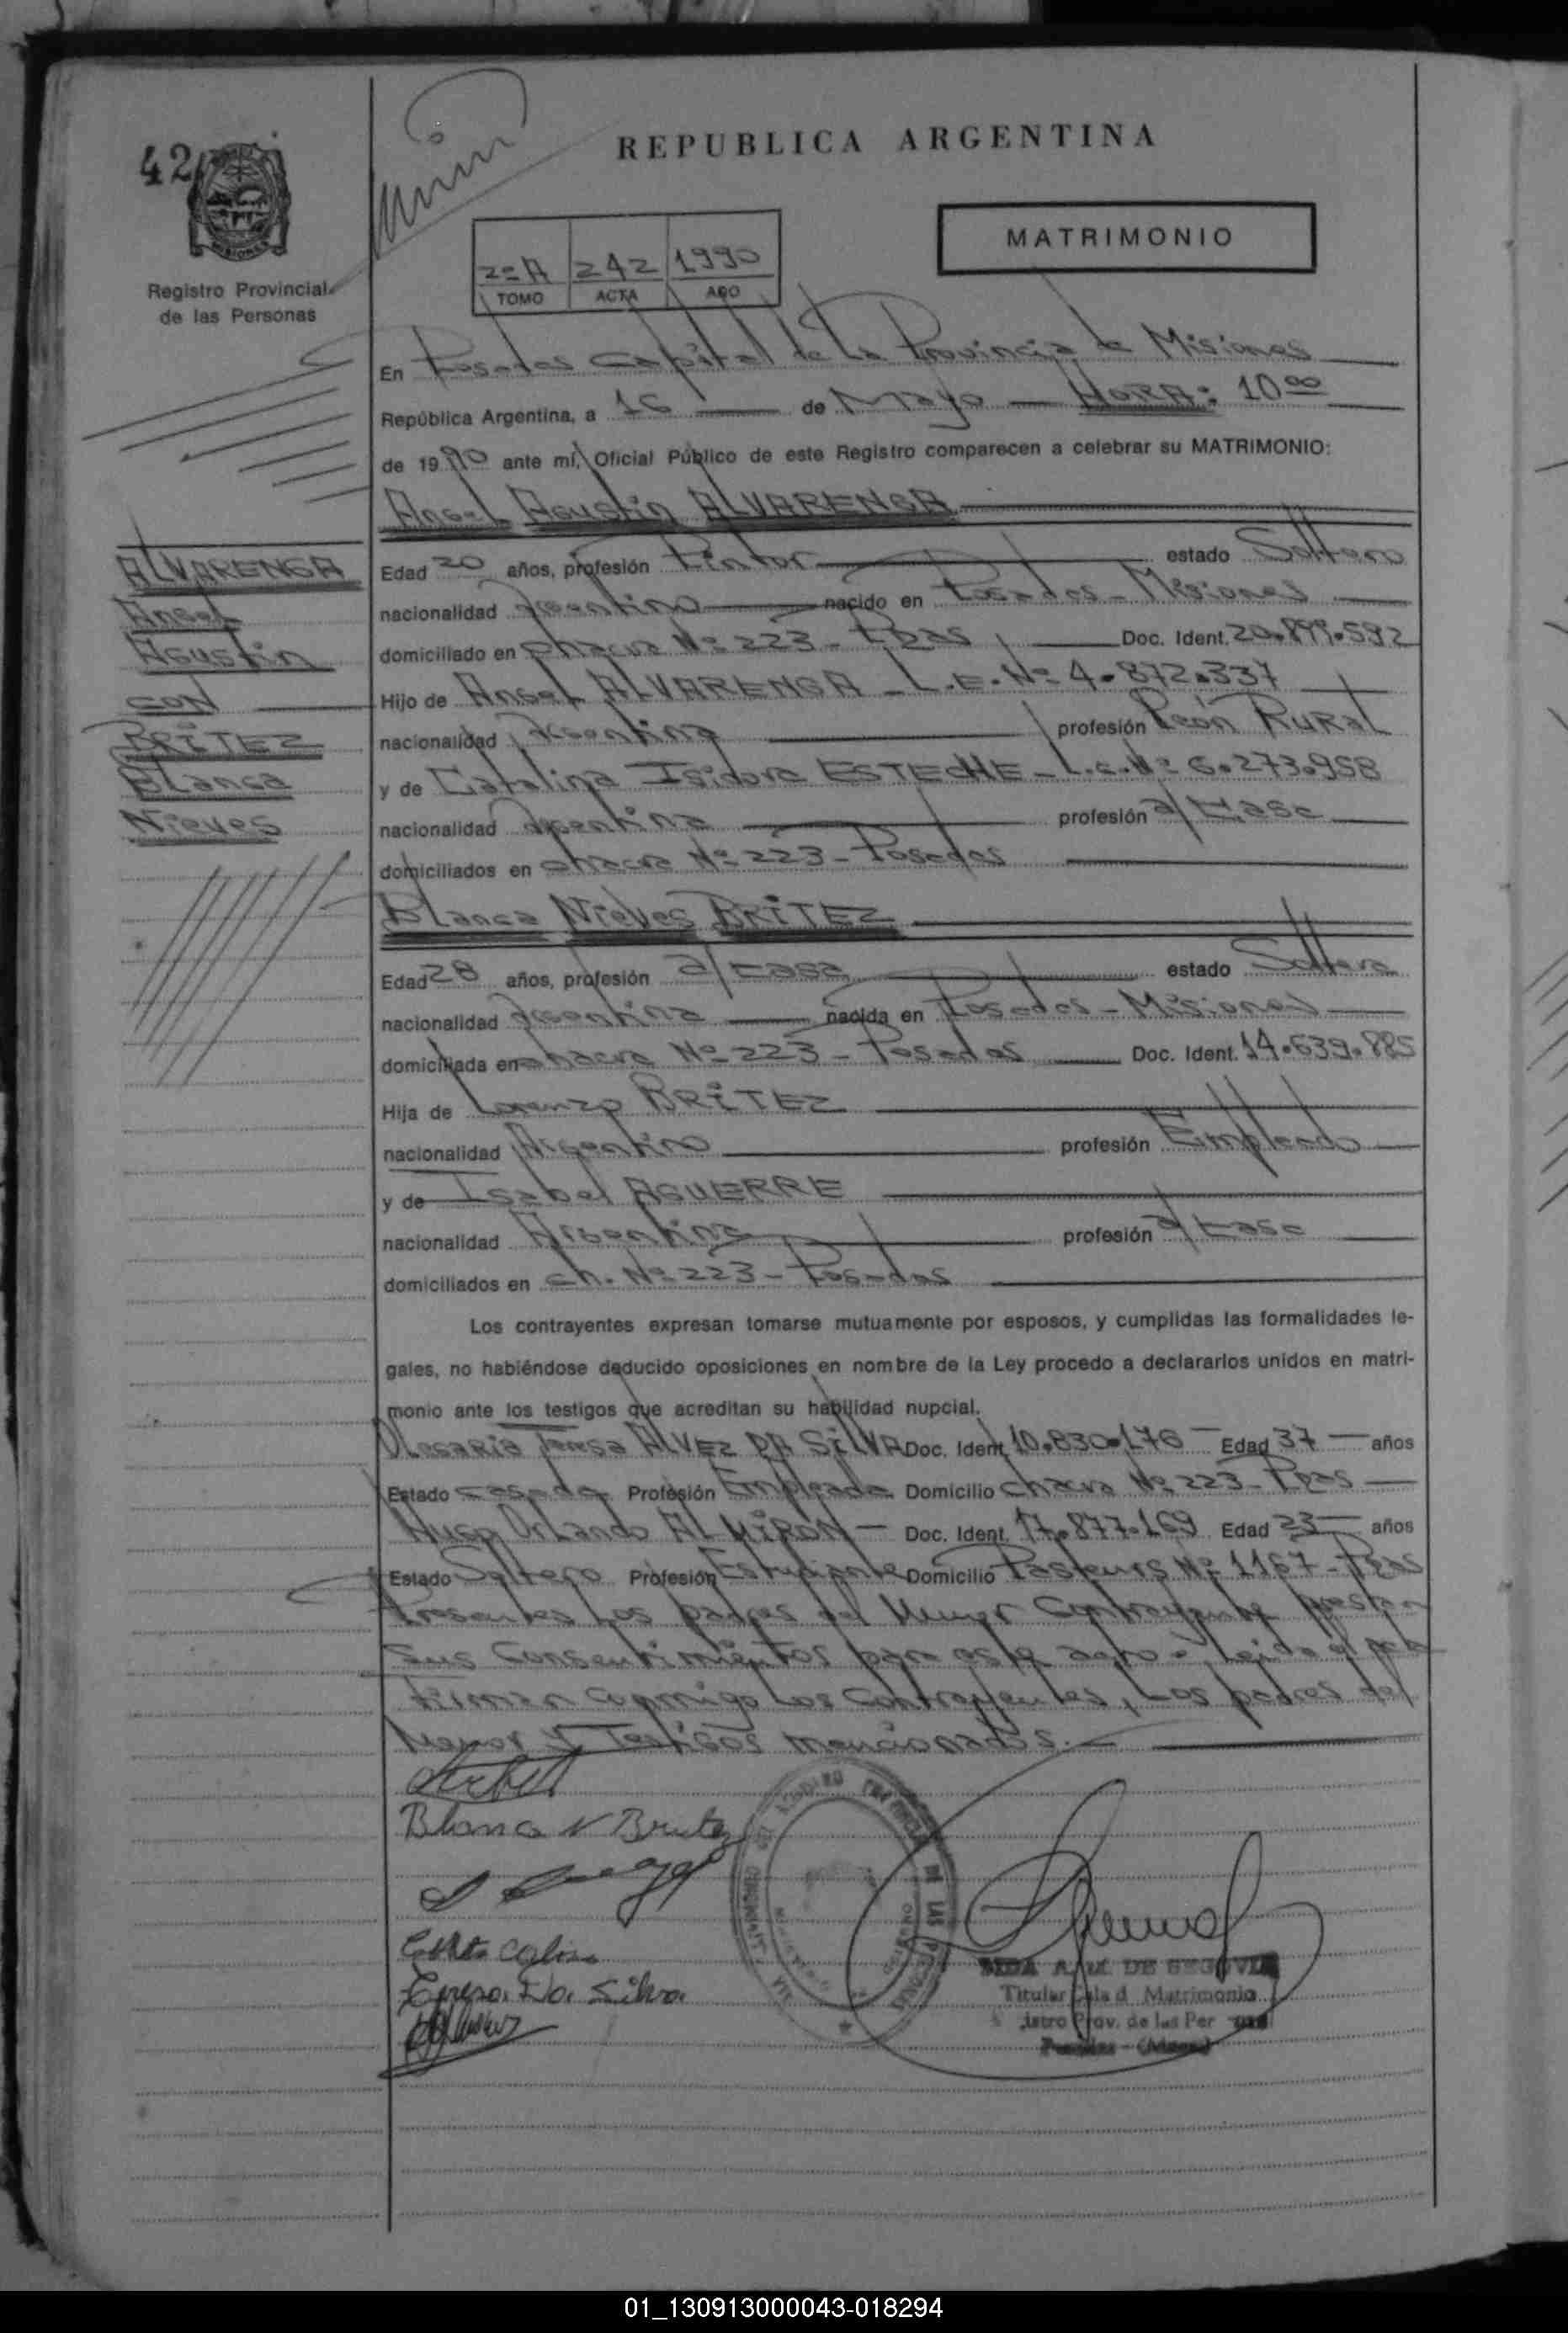 42
REPUBLICA ARGENTINA
MATRIMONIO
MISIONES
Registro Provincial
de las Personas
2º A 242 1990
TOMO ACTA AÑO
En Posadas Capital de la Provincia de Misiones
República Argentina, a 16 de Mayo HORA: 10 00
de 1990 ante mí, Oficial Público de este Registro comparecen a celebrar su MATRIMONIO:
Angel Agustin ALVARENGA
ALVARENGA
Angel
Agustin
CON
BRITEZ
Blanca
Nieves
Edad 20 años, profesión Pintor estado Soltero
nacionalidad Argentino nacido en Posadas - Misiones
domiciliado en chacra Nº 223 - Pdas Doc. Ident. 20.899.592
Hijo de Angel ALVARENGA - L.E. Nº 4.872.337
nacionalidad Argentina profesión Peón Rural
y de Catalina Isidora ESTECHE - L.C. Nº 6.273.958
nacionalidad Argentina profesión a/casa
domiciliados en chacra Nº 223 - Posadas
Blanca Nieves BRITEZ
Edad 28 años, profesión a/casa estado Soltera
nacionalidad Argentina nacida en Posadas - Misiones
domiciliada en chacra Nº 223 - Posadas Doc. Ident. 14.639.885
Hija de Lorenzo BRITEZ
nacionalidad Argentino profesión Empleado
y de Isabel AGUERRE
nacionalidad Argentina profesión a/casa
domiciliados en ch. Nº 223 - Posadas
Los contrayentes expresan tomarse mutuamente por esposos, y cumplidas las formalidades le-
gales, no habiéndose deducido oposiciones en nombre de la Ley procedo a declararlos unidos en matri-
monio ante los testigos que acreditan su habilidad nupcial.
Olegaria Teresa ALVEZ DA SILVA Doc. Ident. 10.830.176 Edad 37 años
Estado casada Profesión Empleada Domicilio chacra Nº 223 - Pdas
Hugo Orlando ALMIRON - Doc. Ident. 17.877.169 Edad 23 años
Estado Soltero Profesión Estudiante Domicilio Pasteurs Nº 1167 - Pdas
Presentes los padres del Menor Contrayente prestan
sus Consentimientos para este acto - Leida el acta
firman conmigo los contrayentes, los padres del
Menor y Testigos mencionados.
Blanca N Britez
Teresa Da Silva
DE SEGOVIA
Titular Matrimonio
Prov. de las Per
01_130913000043-018294